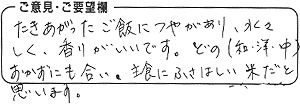 ご意見・ご要望欄
たきあがったご飯につやがあり、水々
しく、香りがいいです。どの(和・洋・中)
おかずにも合い、主食にふさはしい米だと
思います。